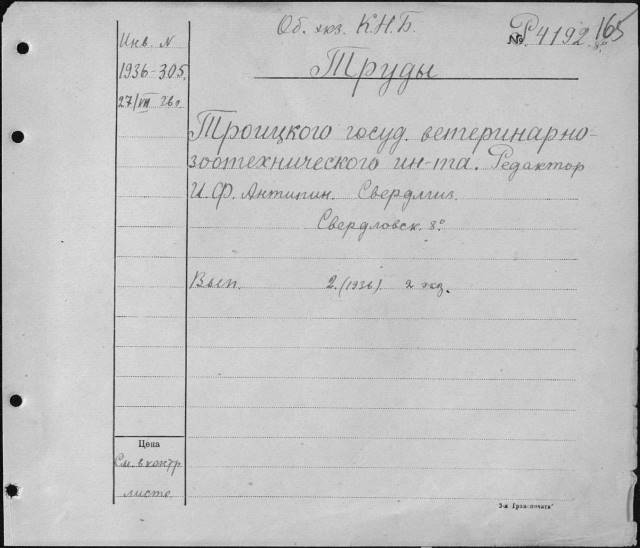 Об. экз. К.Н.Б.
№ Р.4192 165
8°
Инв. N
1936-305.
27/VII 26г.
Труды
Троицкого госуд. ветеринарно-
зоотехнического ин-та. Редактор
И. Ф. Антипин. Свердлгиз.
Свердловск. 8°.
Вып. 2. (1936). 2 экз.
Цена
См. в контр
листе.